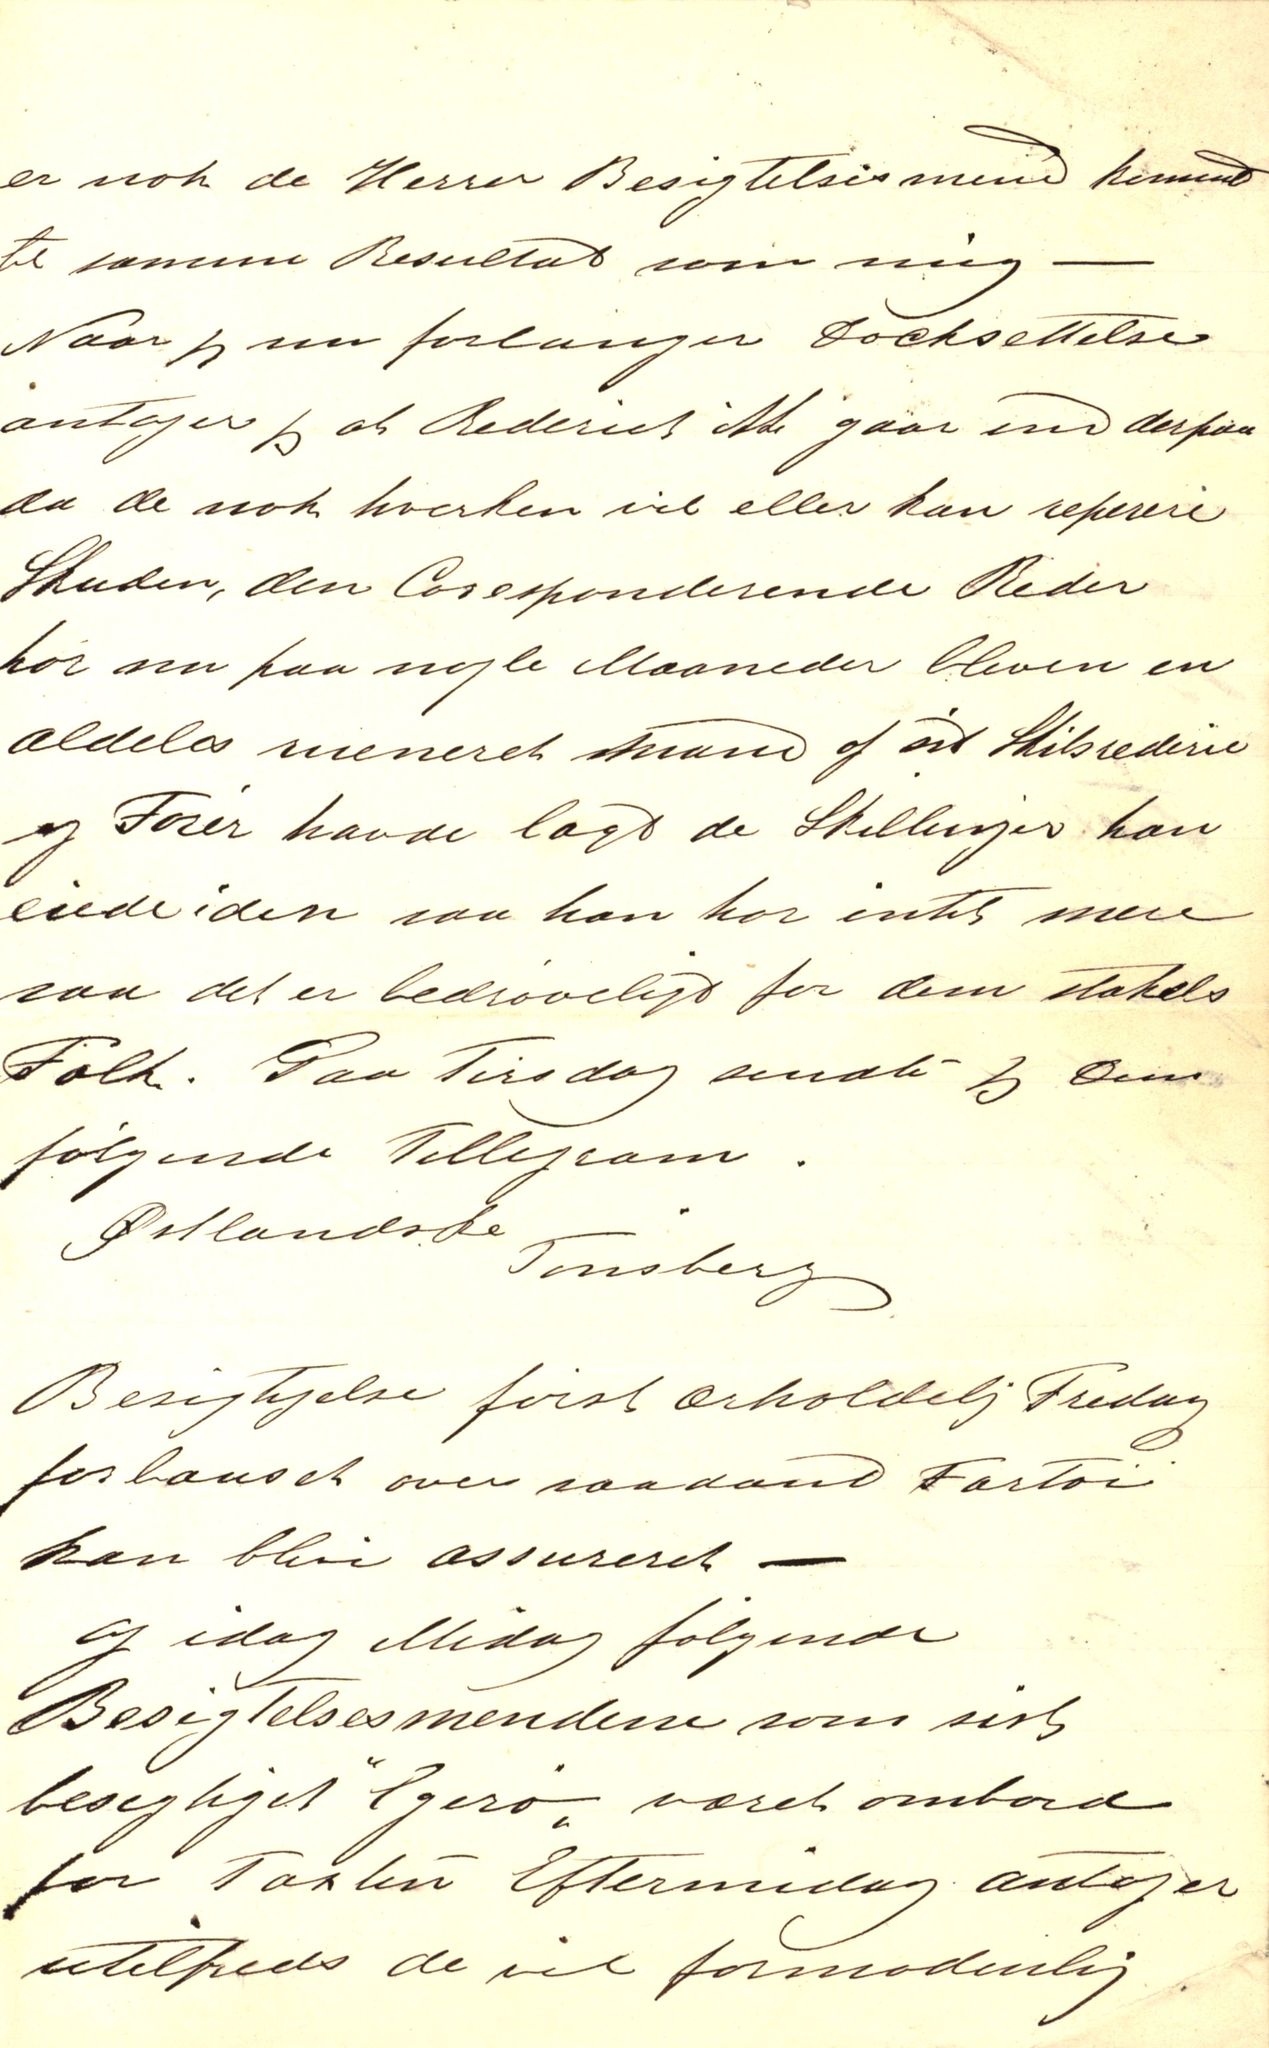 er nok de Herrer Besigtelsismend kommet
til samme Resultat som mig —
Naar jeg nu forlanger Docksettelse
antager jeg at Rederiet ikke gaar ind derpaa
da de nok hverken vil eller kan reperere
Skuden, den Coresponderende Reder
har nu paa nogle Maaneder bleven en
aldeles rueneret Mand of sit Skibsrederie
og havde lagt de Skillinger han
eiede iden saa han har intet mere
saa det er bedrøveligt for dem stakels
Folk. Paa Tirsdag sendte jeg Dem
følgende Tellegram.
Østlandske Tønsberg
Besigtigelse først erholdelig Fredag
forbauset over saadant Fartøi
kan blive assureret —
og idag Midag følgende
Besigtelsesmendene som sist
besigtiget "Egerø" været ombord
for Taxten Eftermidag antager
utilfreds de vil formodentlig